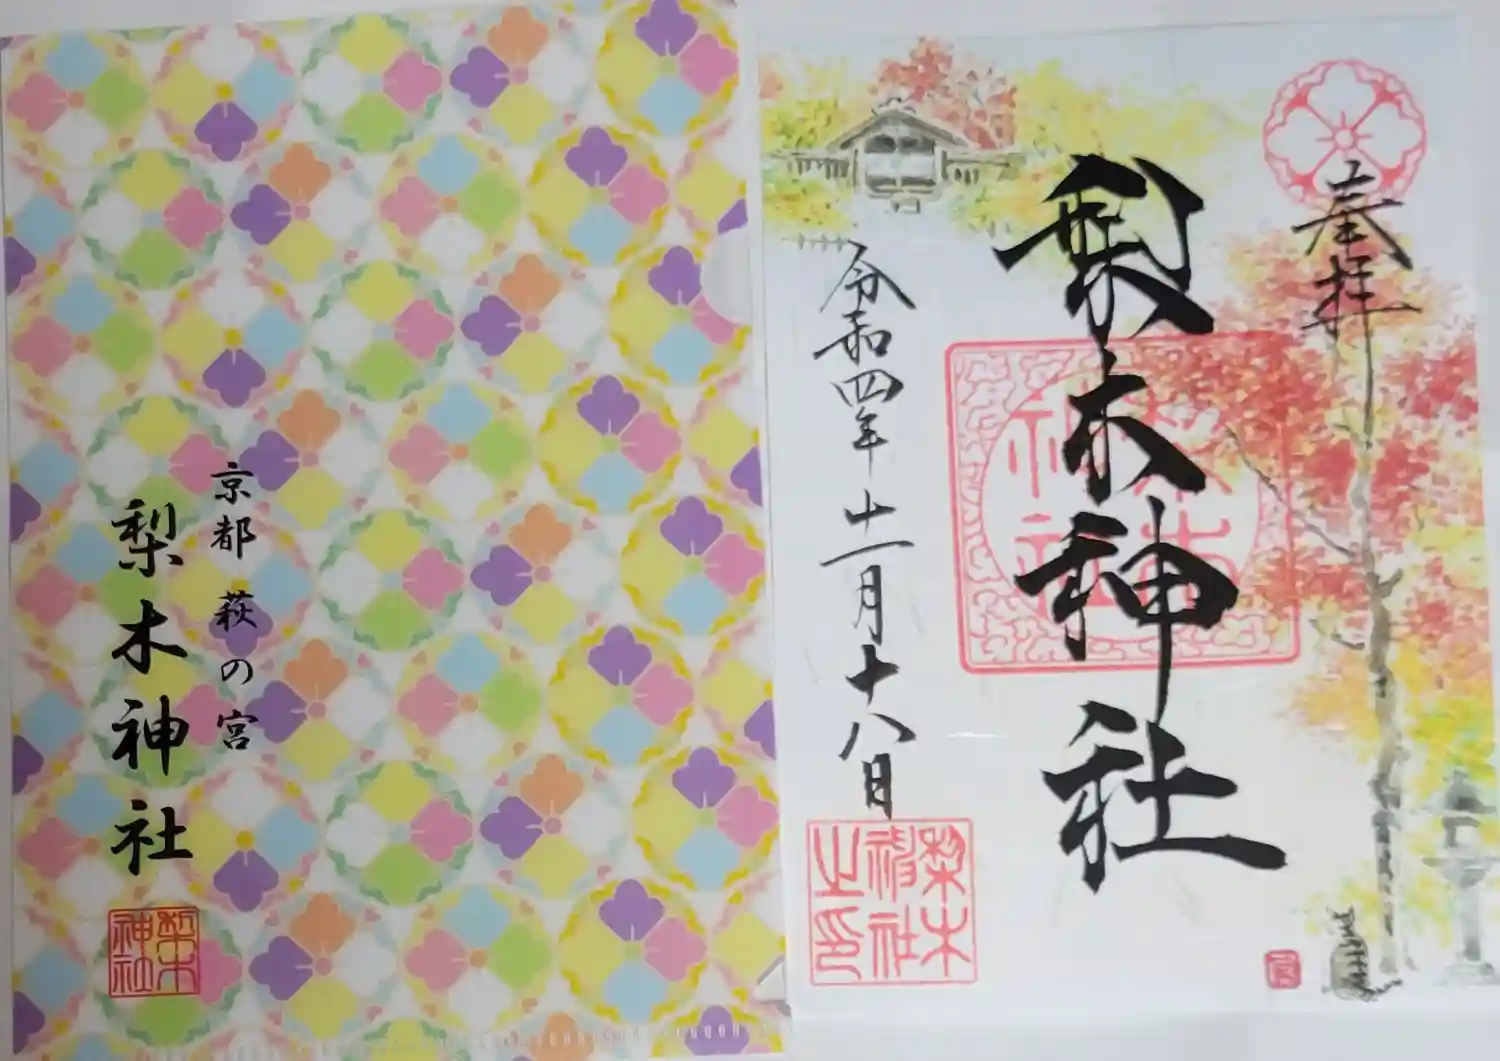 京都 萩の宮
梨木神社
梨木神社
奉拝
梨木神社
梨木神社
令和四年十一月十八日
梨木神社之印